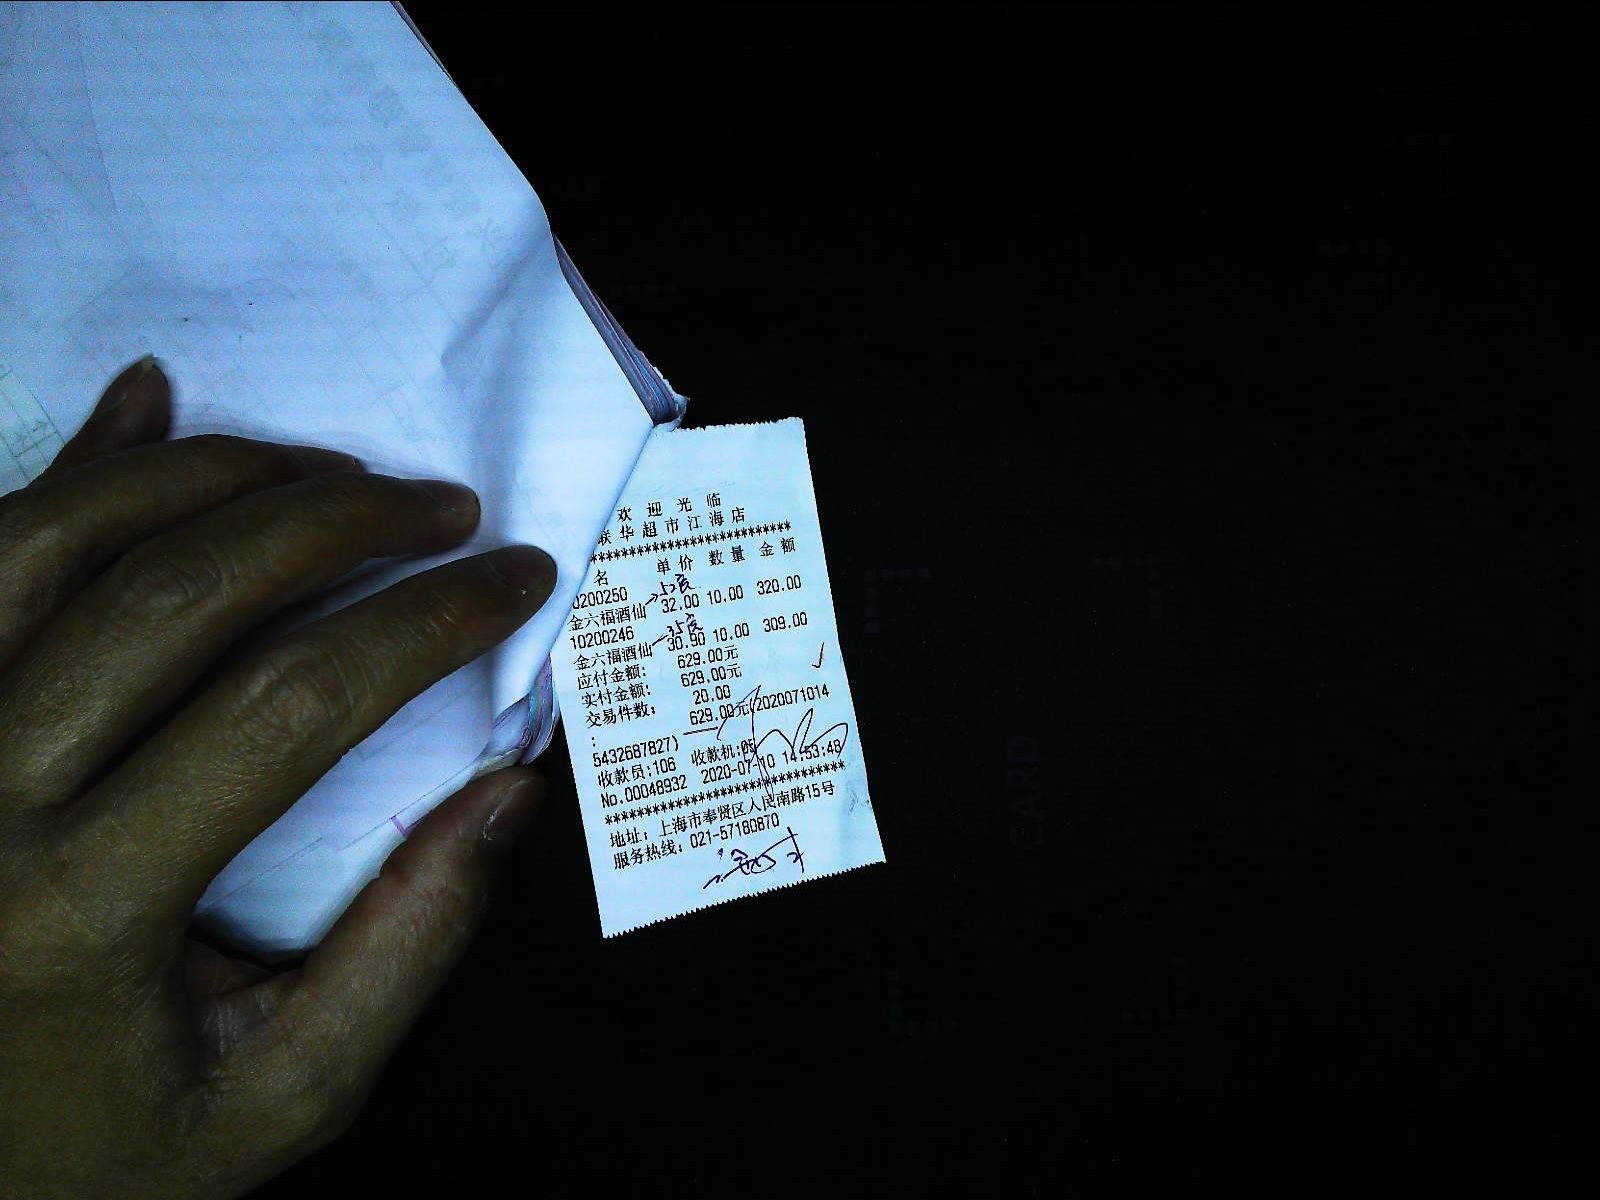 欢迎光临
联华超市江海店
***************************
名 单价 数量 金额
0200250 52度
金六福酒仙 32.00 10.00 320.00
10200246 35度
金六福酒仙 30.90 10.00 309.00
应付金额: 629.00元
实付金额: 629.00元
交易件数: 20.00
: 629.00元(2020071014
5432687827)
收款员:106 收款机:05
No.00048932 2020-07-10 14:53:48
********************************
地址: 上海市奉贤区人民南路15号
服务热线: 021-57180870